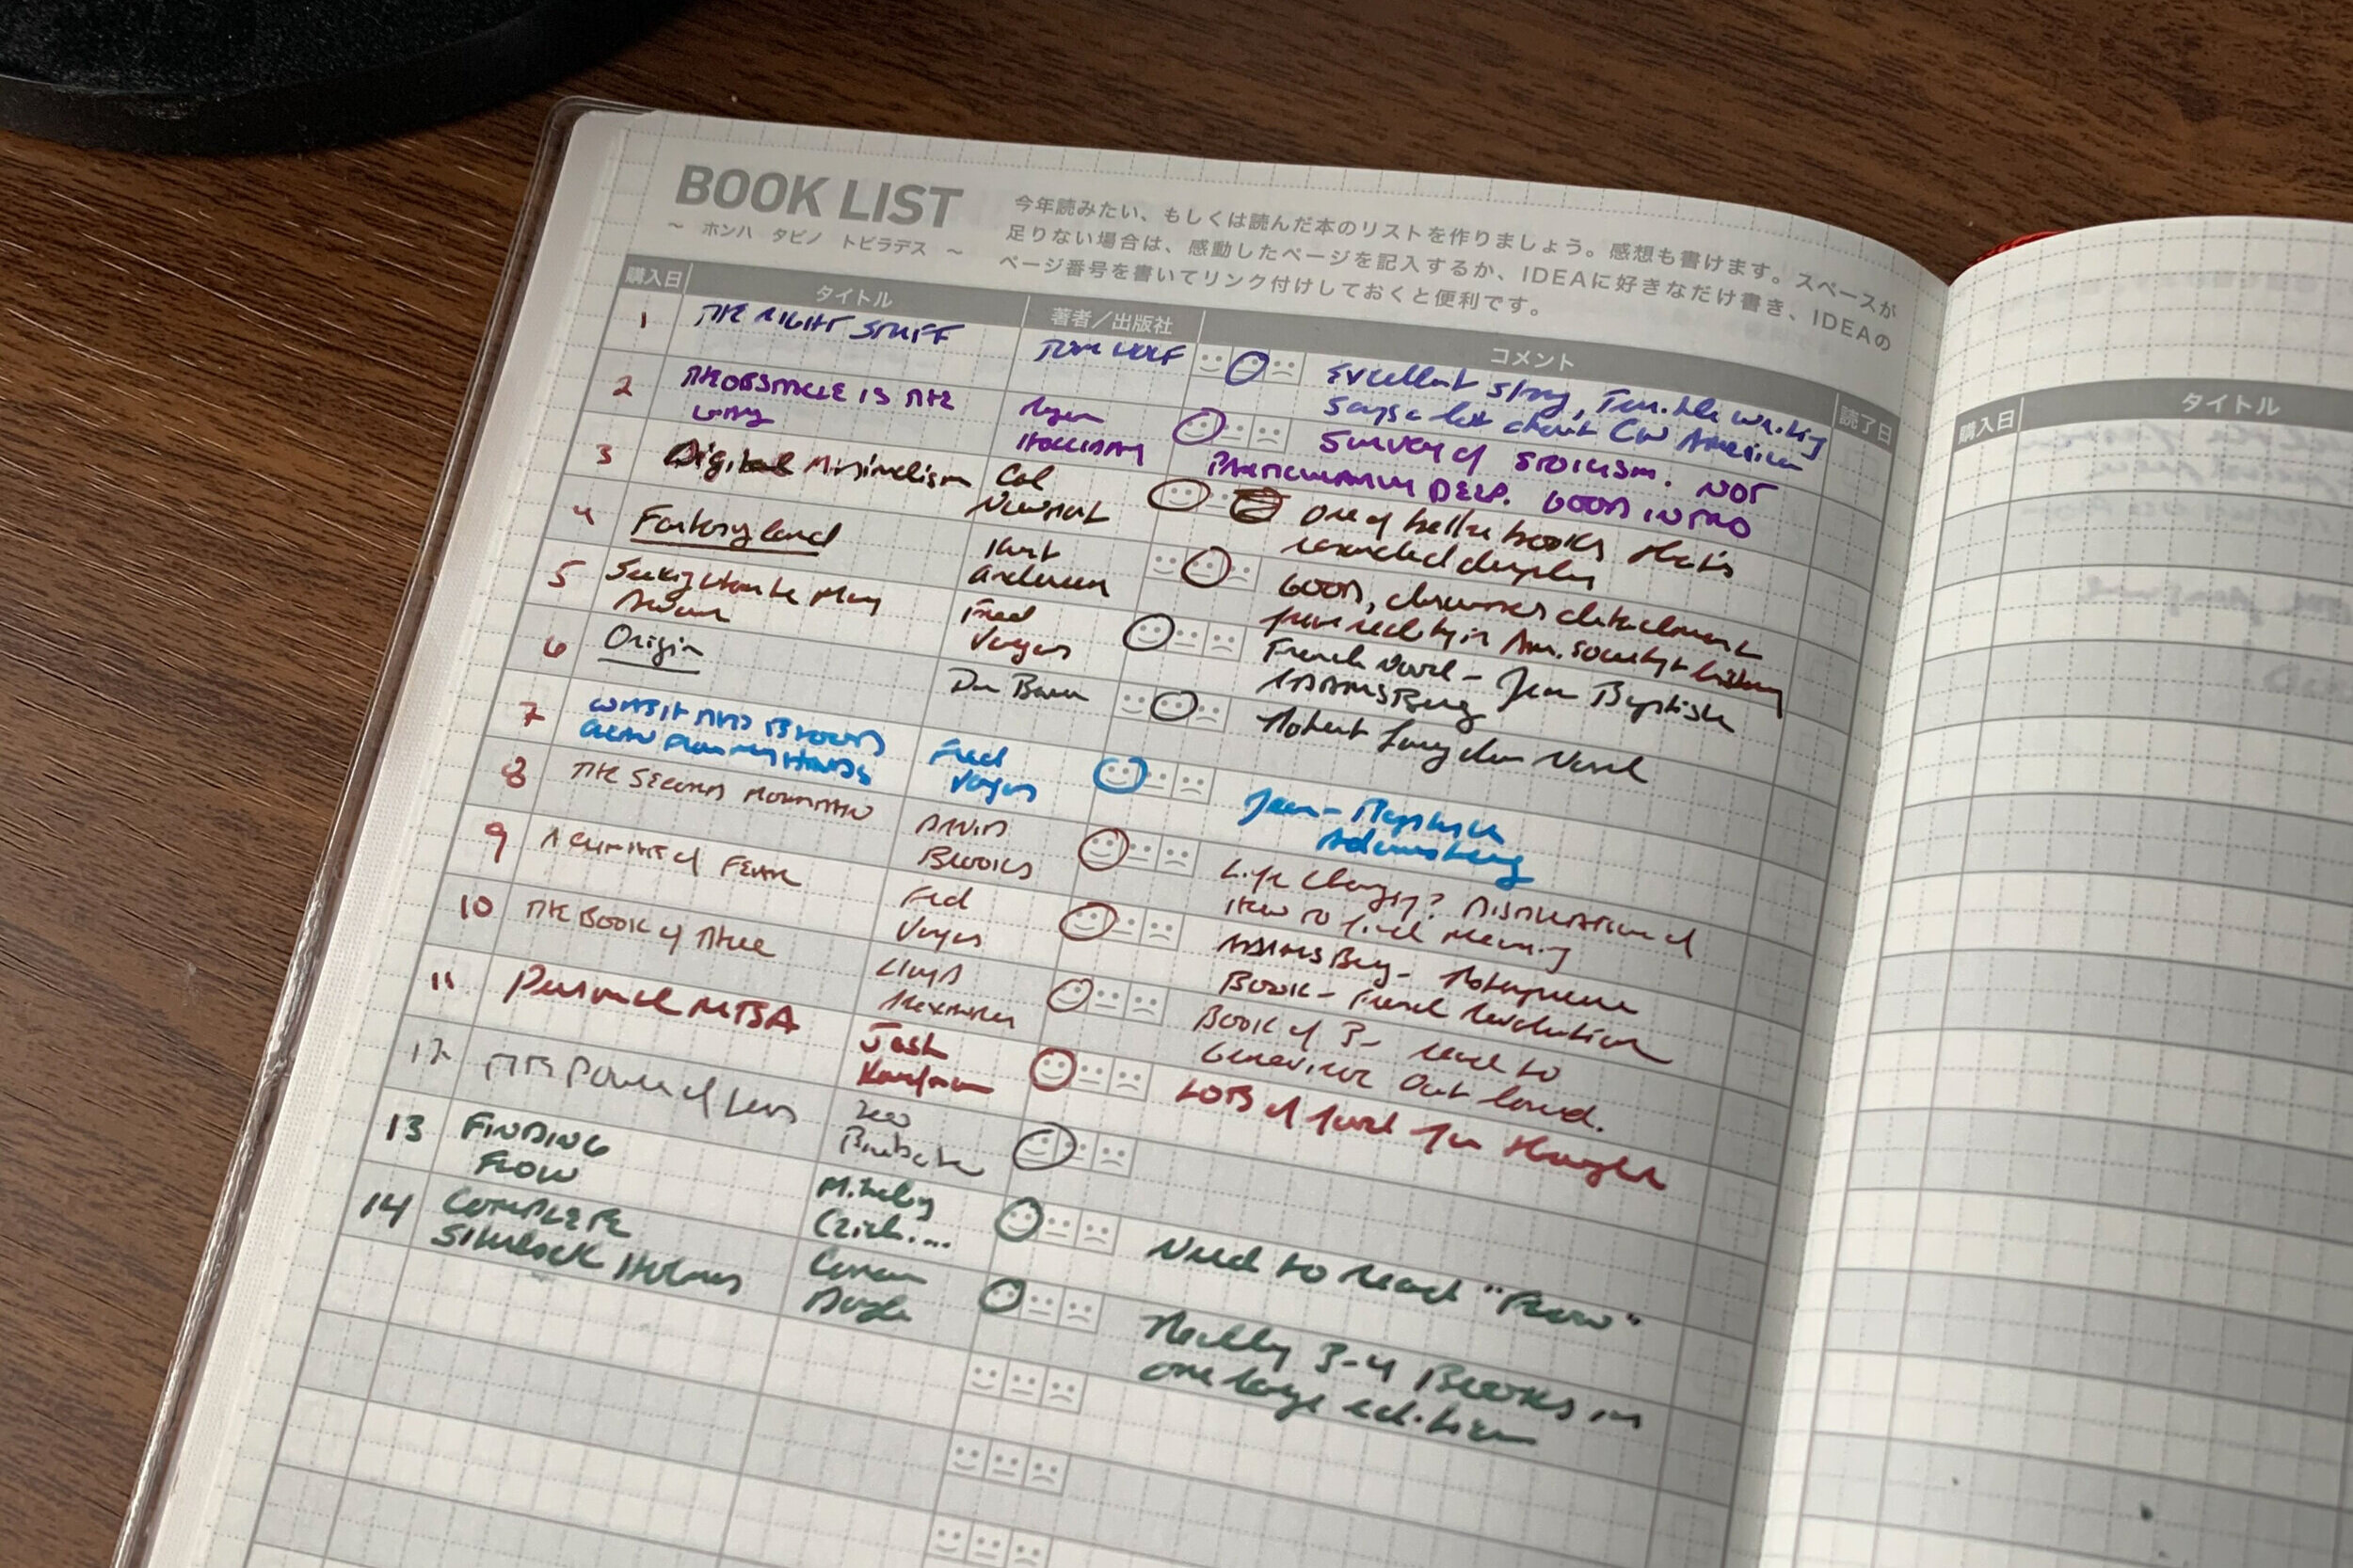 BOOK LIST
～ ホンハ タビノ トビラデス ～
今年読みたい、もしくは読んだ本のリストを作りましょう。感想も書けます。スペースが
足りない場合は、感動したページを記入するか、IDEAに好きなだけ書き、IDEAの
ページ番号を書いてリンク付けしておくと便利です。
購入日 タイトル 著者／出版社 コメント 読了日
1 THE RIGHT STUFF Tom WOLF Excellent story, Terrible writing
Says a lot about CW America
2 THE OBSTACLE IS THE
WAY
Ryan
HOLLIDAY
SURVEY of STOICISM. NOT
PARTICULARLY DEEP. GOOD INTRO
3 Digital Minimalism Cal
Newport
One of better books that's
resonated deeply
4 Fantasyland Kurt
Andersen
GOOD, chronicles detachment
from reality in Am. society + history
5 Seeking Whom He May
Devour
Fred
Vargas
French Novel - Jean Baptiste
ADAMSBERG
6 Origin Dan Brown Robert Langdon Novel
7 WASH IT AND BROWN
Fred
Vargas
Jean-Baptiste
Adamsberg
8 THE SECOND MOUNTAIN DAVID
BROOKS
Life Changing? DISSERTATION of
HOW TO find meaning
9 A CLIMATE of FEAR Fred
Vargas
ADAMSBERG - Robespierre
BOOK - French Revolution
10 THE BOOK of Three LLOYD
ALEXANDER
BOOK of 3 - read to
Genevieve Out loud.
11 Personal MBA Josh
Kaufman
LOTS of food for thought
12 THE Power of Less Leo
Babauta
13 FINDING
FLOW
Mihaly
Czich....
Need to read "FLOW"
14 COMPLETE
SHERLOCK HOLMES
Conan
Doyle
Really 3-4 Books in
one large edition
購入日 タイトル